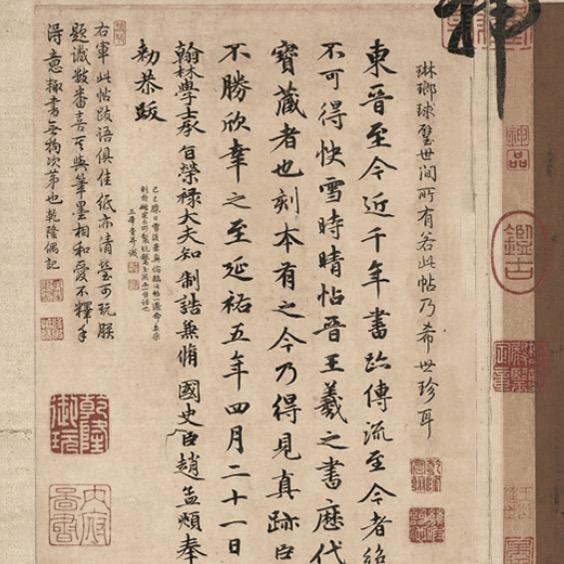 神
神品
琳瑯球璧世間所有若此帖乃希世珍耳
東晉至今近千年書跡傳流至今者絕
不可得快雪時晴帖晉王羲之書歷代
寶藏者也刻本有之今乃得見真跡臣
不勝欣幸之至延祐五年四月二十一日
翰林學士承旨榮祿大夫知制誥兼脩國史臣趙孟頫奉
勅恭跋
右軍此帖跋語俱佳紙亦清瑩可玩朕
題識數番喜其與筆墨相和愛不釋手
得意輒書無拘次第也乾隆偶記
乾隆御玩
內府圖書